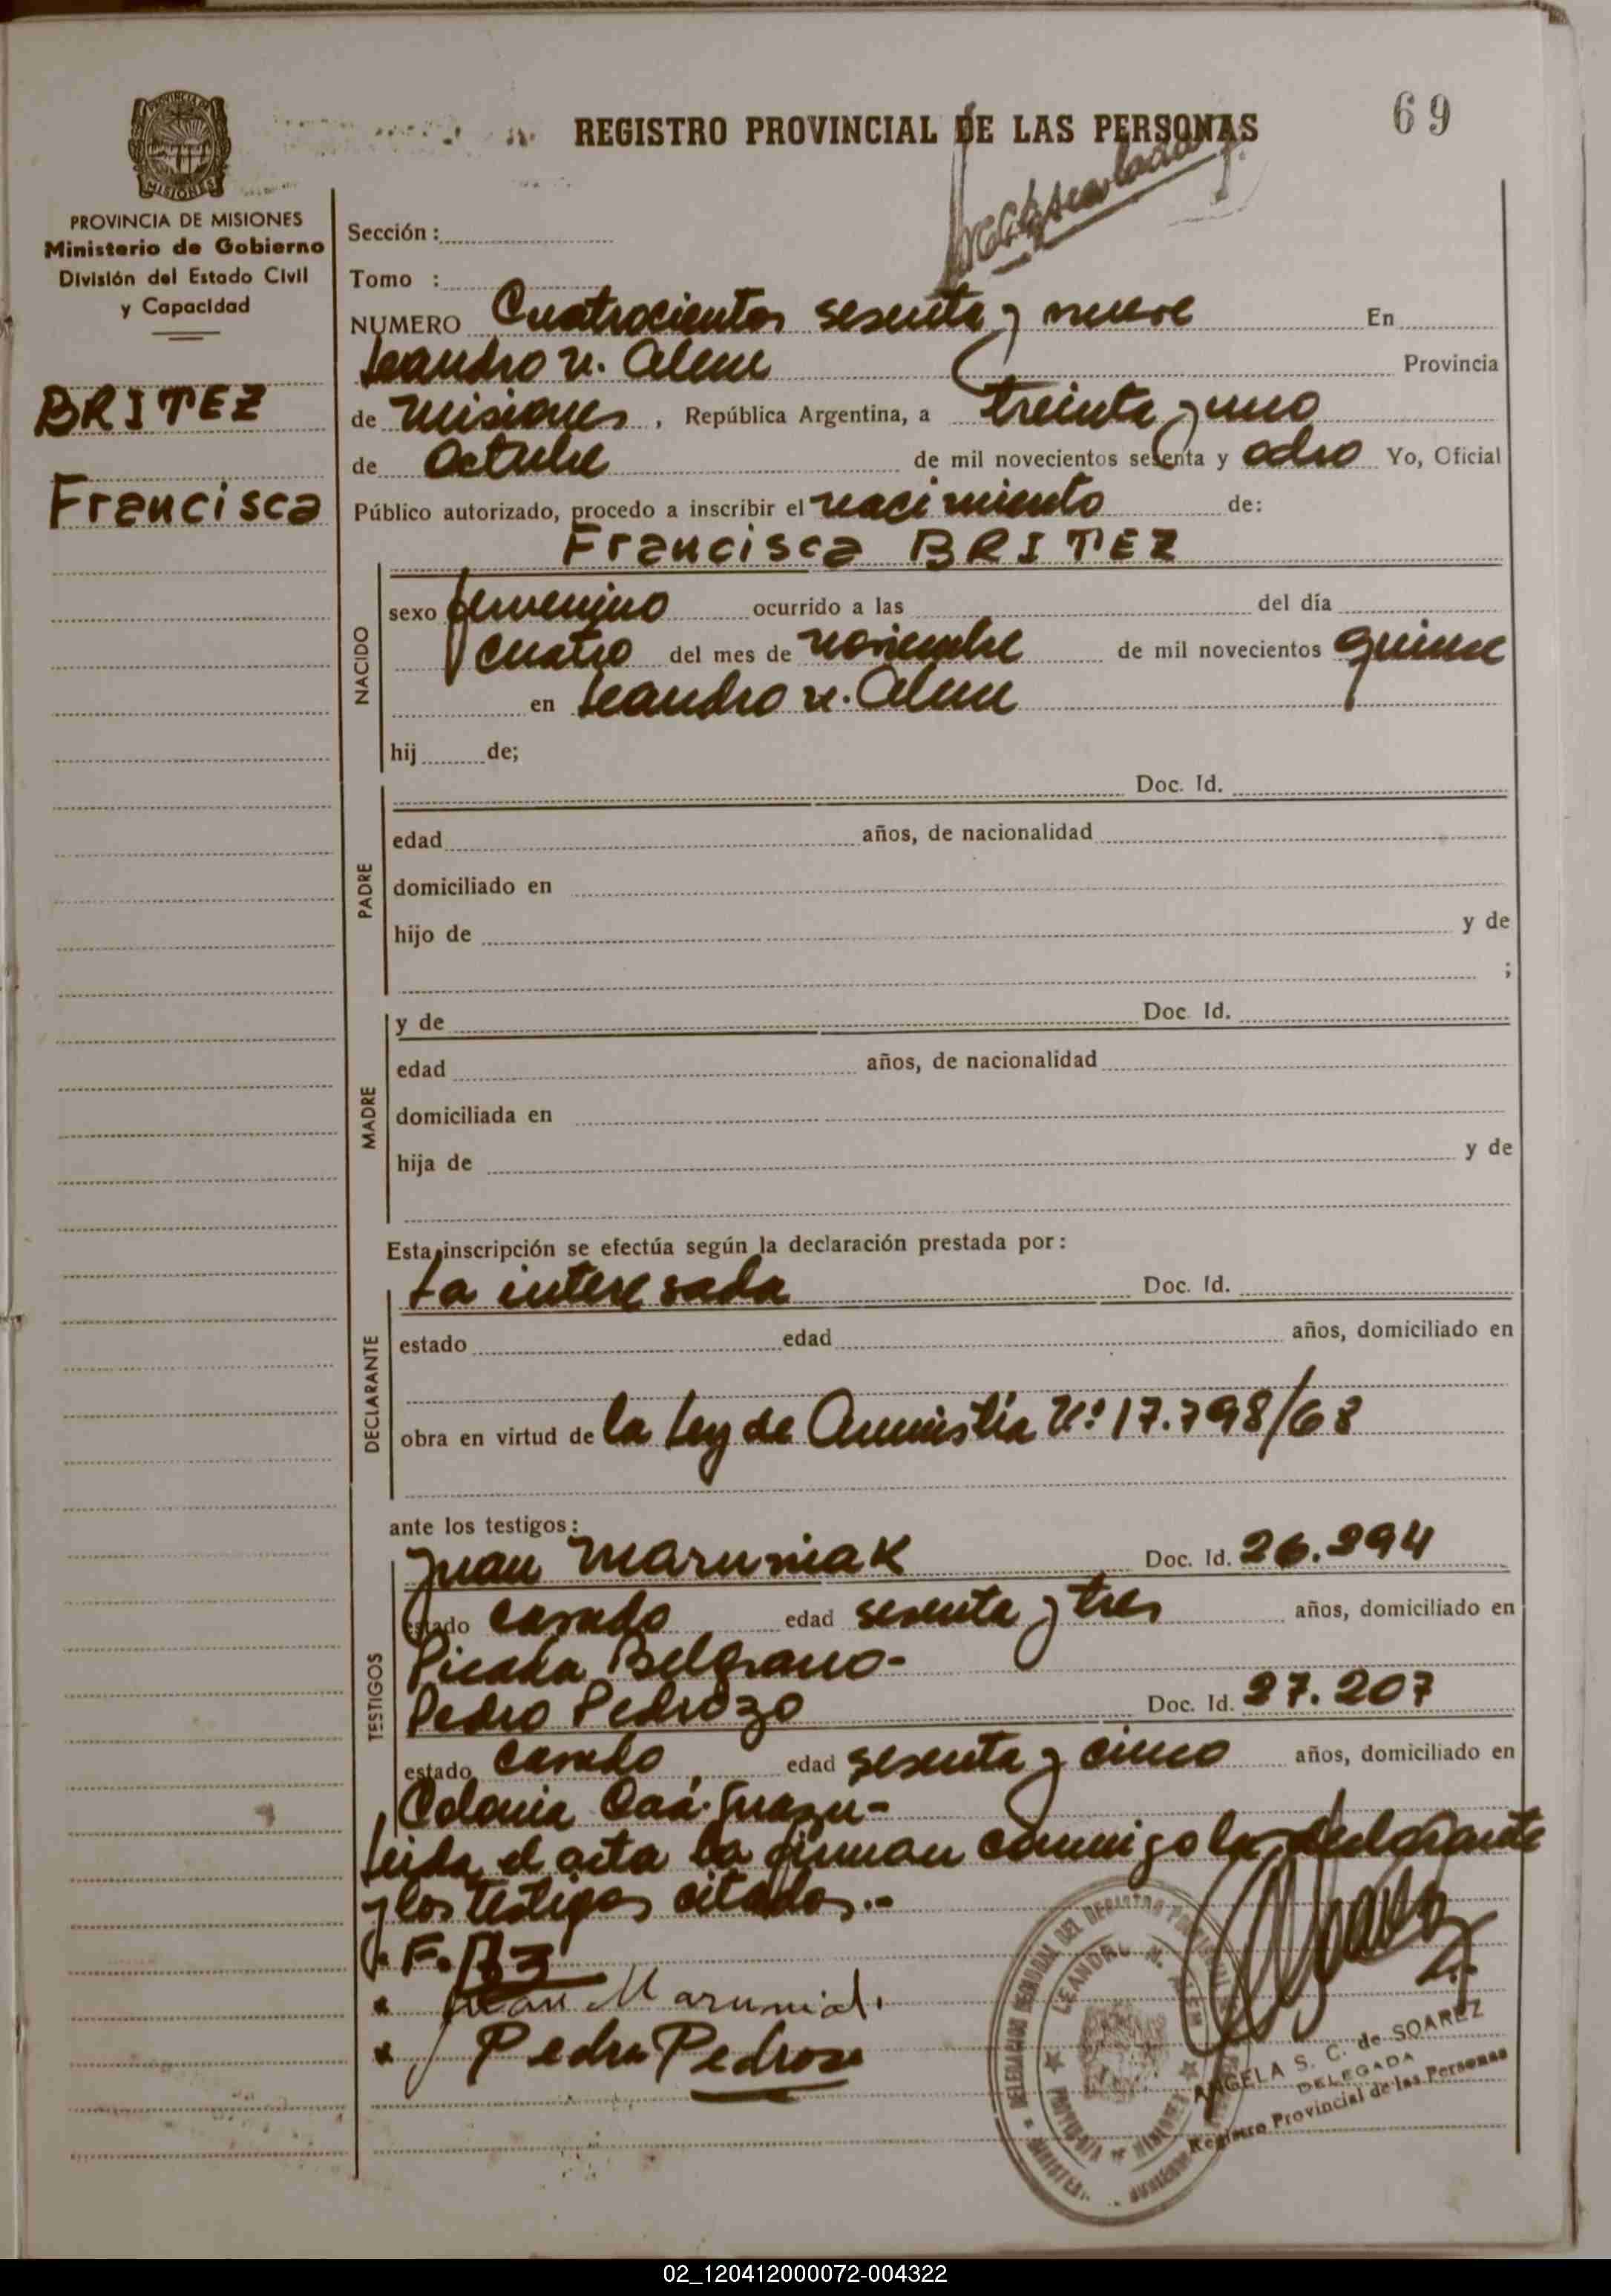 69
REGISTRO PROVINCIAL DE LAS PERSONAS
PROVINCIA DE MISIONES
Ministerio de Gobierno
División del Estado Civil
y Capacidad
BRITEZ
Francisca
Sección :
Tomo :
NUMERO Cuatrocientos sesenta y nueve En
Leandro N. Alem Provincia
de Misiones , República Argentina, a treinta y uno
de Octubre de mil novecientos sesenta y ocho Yo, Oficial
Público autorizado, procedo a inscribir el nacimiento de:
Francisca BRITEZ
NACIDO
sexo femenino ocurrido a las del día
cuatro del mes de noviembre de mil novecientos quince
en Leandro N. Alem
hij de;
PADRE
Doc. Id.
edad años, de nacionalidad
domiciliado en
hijo de y de
;
MADRE
y de Doc. Id.
edad años, de nacionalidad
domiciliada en
hija de y de
Esta inscripción se efectúa según la declaración prestada por:
DECLARANTE
La interesada Doc. Id.
estado edad años, domiciliado en
obra en virtud de la Ley de Amnistia Nº 17.798/68
ante los testigos:
TESTIGOS
Juan Maruniak Doc. Id.
estado casado edad sesenta y tres años, domiciliado en
Picada Belgrano-
Pedro Pedrozo Doc. Id. 27.207
estado casado, edad sesenta y cinco años, domiciliado en
Colonia Caá-Guazu-
Leida el acta la firman conmigo la declarante
y los testigos citados.-
Juan Maruniak
Pedro Pedroso
LEANDRO N. ALEM
PROVINCIA DE MISIONES
ANGELA S. C. de SOAREZ
DELEGADA
Registro Provincial de las Personas
02_120412000072-004322